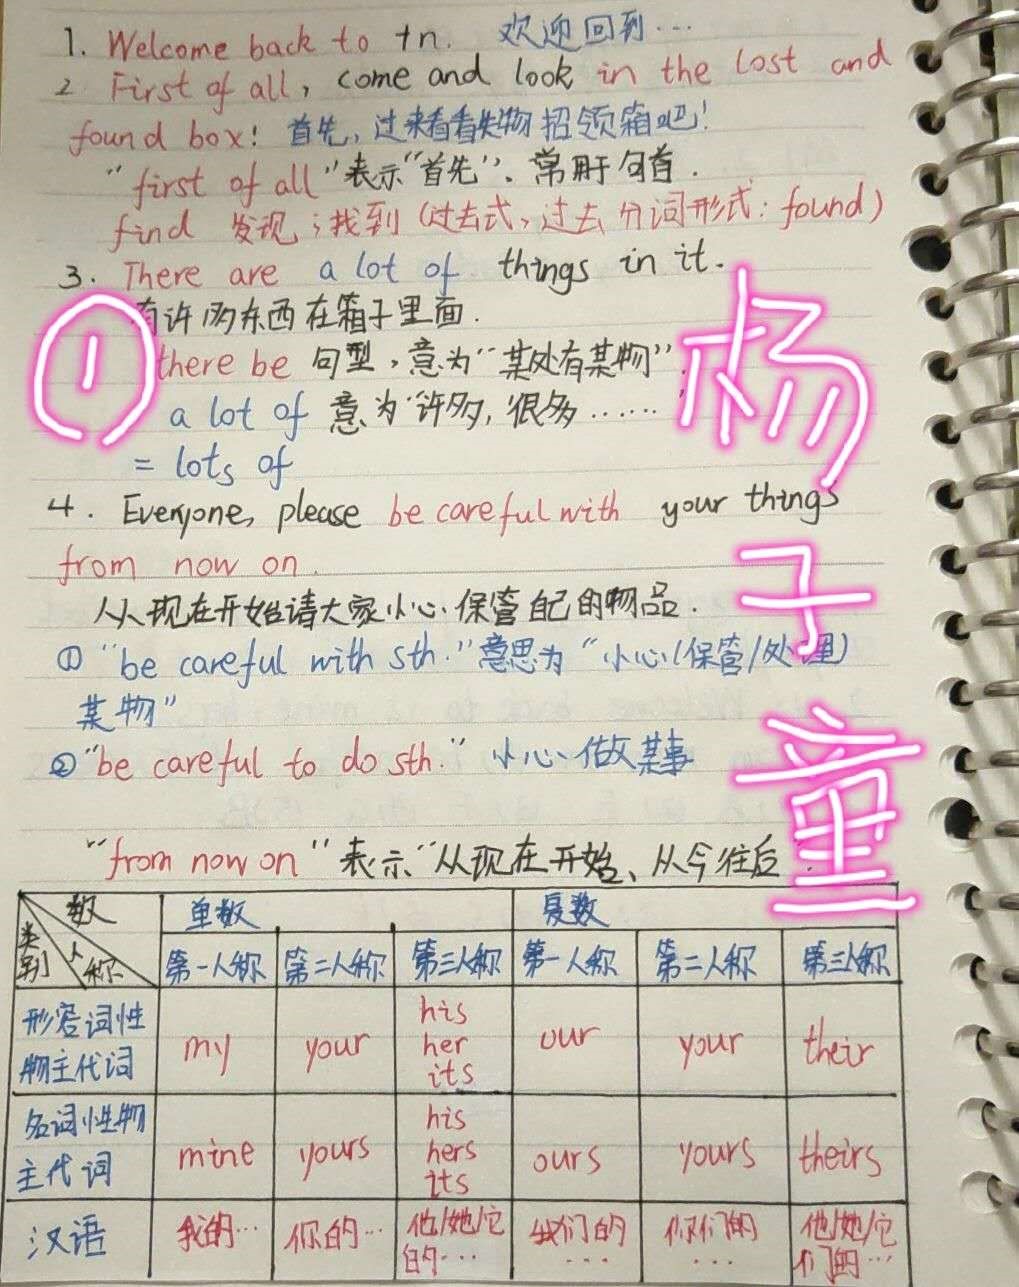 1. Welcome back to +n. 欢迎回到…
2 First of all, come and look in the lost and
found box! 首先,过来看看失物招领箱吧!
"first of all"表示"首先"、常用于句首.
find 发现;找到(过去式,过去分词形式:found)
3. There are a lot of things in it.
有许多东西在箱子里面.
①
there be 句型,意为"某处有某物"
a lot of 意为"许多,很多……
= lots of
4. Everyone, please be careful with your things
from now on.
从现在开始请大家小心保管自己的物品.
① "be careful with sth."意思为"小心(保管/处理)
某物"
② "be careful to do sth." 小心做某事
"from now on"表示"从现在开始、从今往后
杨
子
童
数 人称 类别 单数 复数
第一人称 第二人称 第三人称 第一人称 第二人称 第三人称
形容词性物主代词 my your his her its our your their
名词性物主代词 mine yours his hers its ours yours theirs
汉语 我的… 你的… 他/她/它的… 我们的… 你们的… 他/她/它们的…